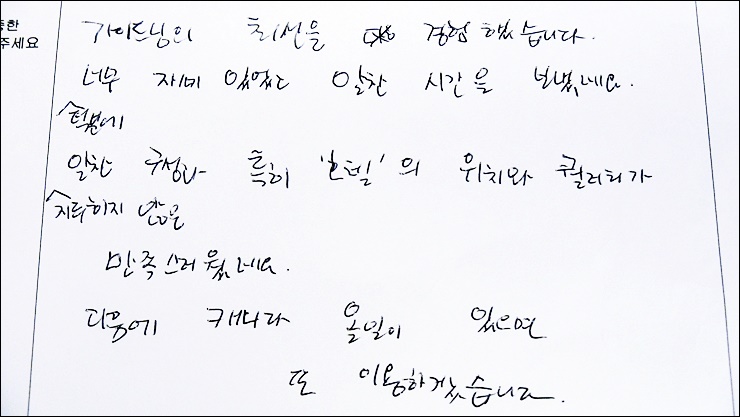 중한
주세요
가이드님의 최선을 경험했습니다.
너무 재미있었고 알찬 시간을 보냈네요.
덕분에
알찬 구성과 특히 '호텔'의 위치와 퀄리티가
지루하지 않은
만족스러웠네요.
다음에 캐나다 올일이 있으면
또 이용하겠습니다.